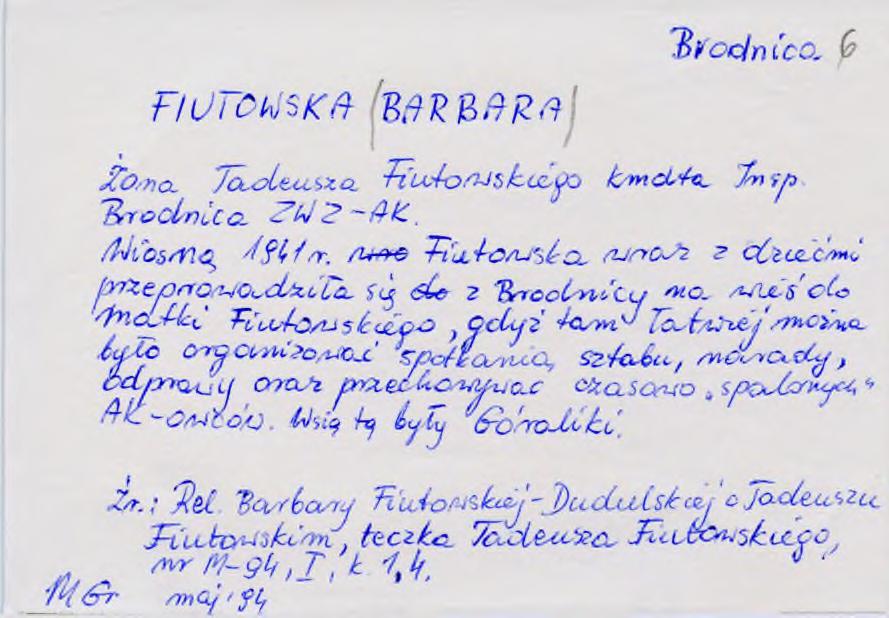 Brodnica 6
FIUTOWSKA (BARBARA)
Żona Tadeusza Fiutowskiego kmdta Insp.
Brodnica ZWZ-AK.
Wiosną 1941 r. Fiutowska wraz z dziećmi
przeprowadziła się do z Brodnicy na wieś do
Matki Fiutowskiego, gdyż tam łatwiej można
było organizować spotkania sztabu, narady,
odprawy oraz przechowywać czasowo „spalonych"
AK-owców. Wsią tą były Góraliki.
Źr.: Rel. Barbary Fiutowskiej-Dudulskiej o Tadeuszu
Fiutowskim, teczka Tadeusza Fiutowskiego,
nr M-94, I, k. 1,4.
MGr maj '94